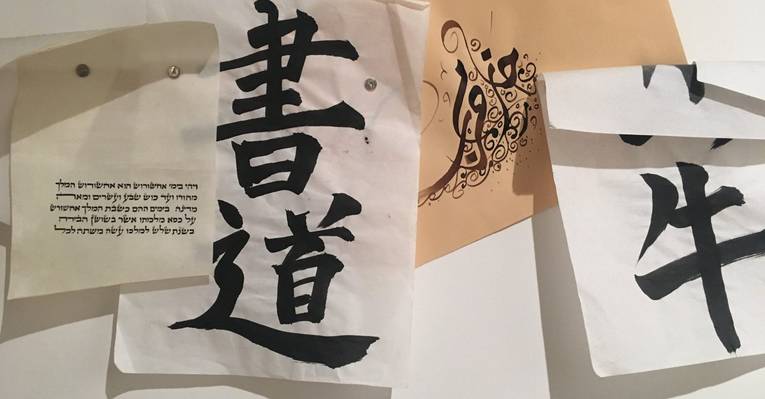 ויהי בימי אחשורוש הוא אחשורוש המלך
מהודו ועד כוש שבע ועשרים ומאה
מדינה בימים ההם כשבת המלך אחשורוש
על כסא מלכותו אשר בשושן הבירה
בשנת שלש למלכו עשה משתה לכל
書道
牛